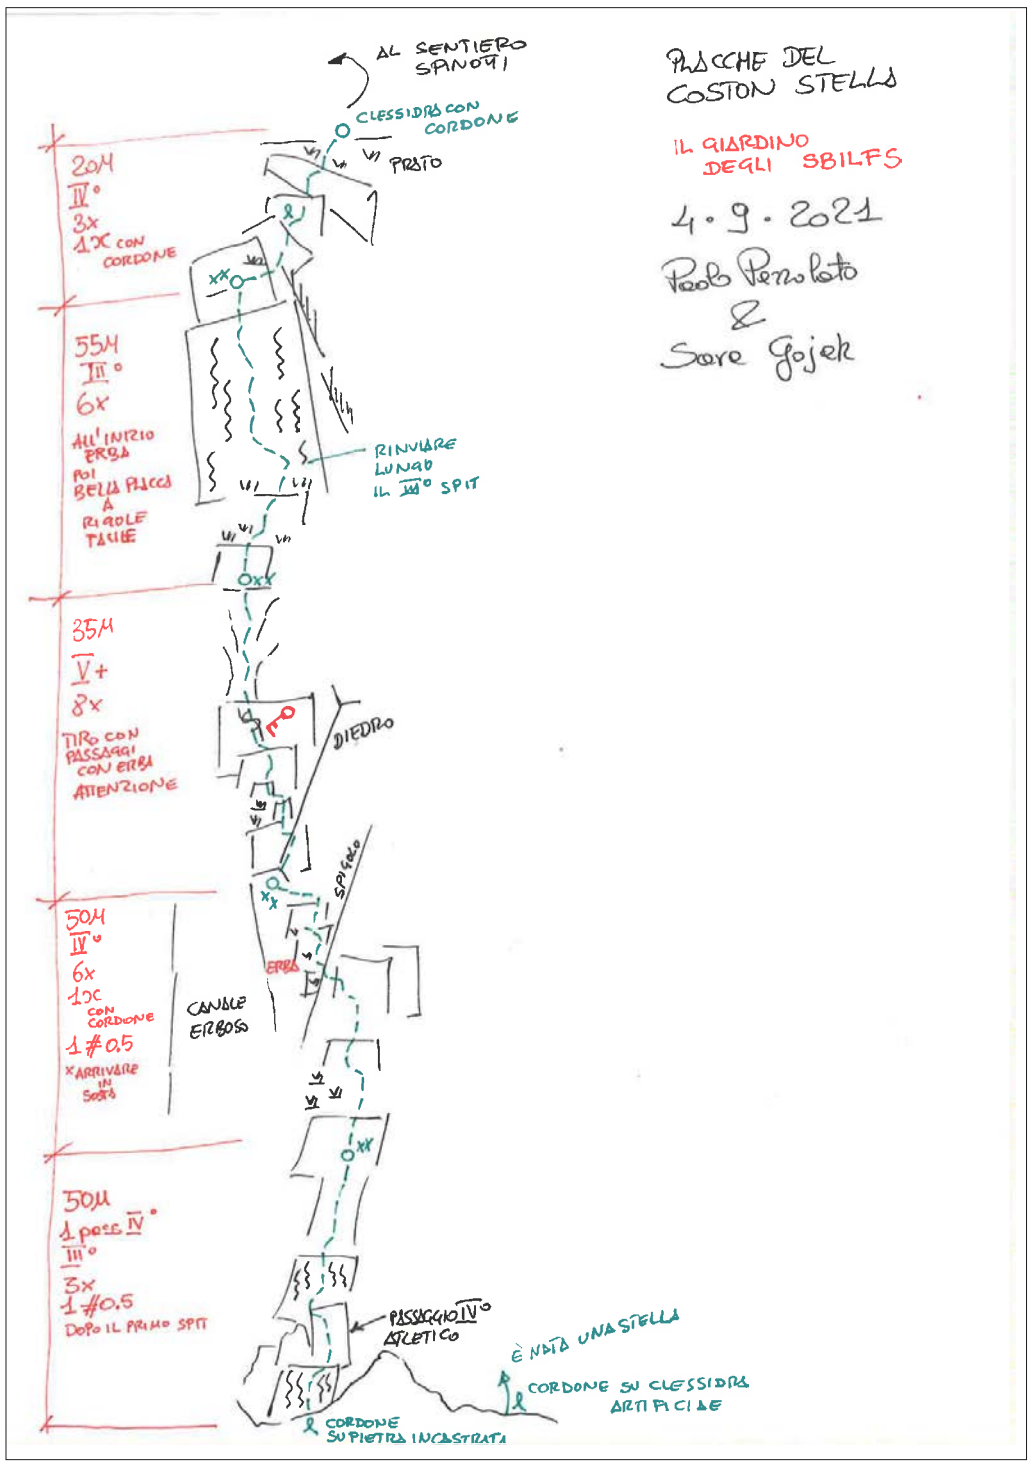 AL SENTIERO
SPINOTTI
CLESSIDRA CON
CORDONE
PRATO
PLACCHE DEL
COSTON STELLA
IL GIARDINO
DEGLI SBILFS
4.9.2021
Paolo Pezzolato
&
Sara Gojak
20M
IV°
3x
1X CON
CORDONE
xx
55M
III°
6x
ALL'INIZIO
ERBA
POI
BELLA PLACCA
A
RIGOLE
FACILE
RINVIARE
LUNGO
IL III° SPIT
xx
35M
V+
8x
TIRO CON
PASSAGGI
CON ERBA
ATTENZIONE
DIEDRO
SPIGOLO
xx
50M
IV°
6x
1X
CON
CORDONE
1#0.5
x ARRIVARE
IN
SOSTA
ERBA
CANALE
ERBOSO
xx
50M
1 pass IV°
III°
3x
1#0.5
DOPO IL PRIMO SPIT
PASSAGGIO IV°
ATLETICO
È NATA UNA STELLA
CORDONE SU CLESSIDRA
ARTIFICIALE
CORDONE
SU PIETRA INCASTRATA